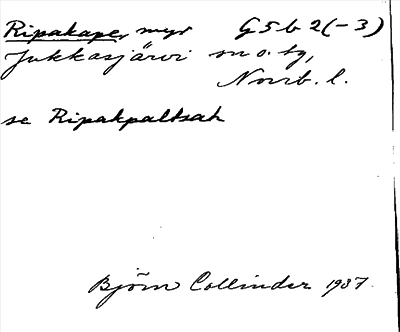 Ripakape, myr G5b2(-3)
Jukkasjärvi sn o. tg,
Norrb. l.
se Ripakpaltsah
Björn Collinder 1937.